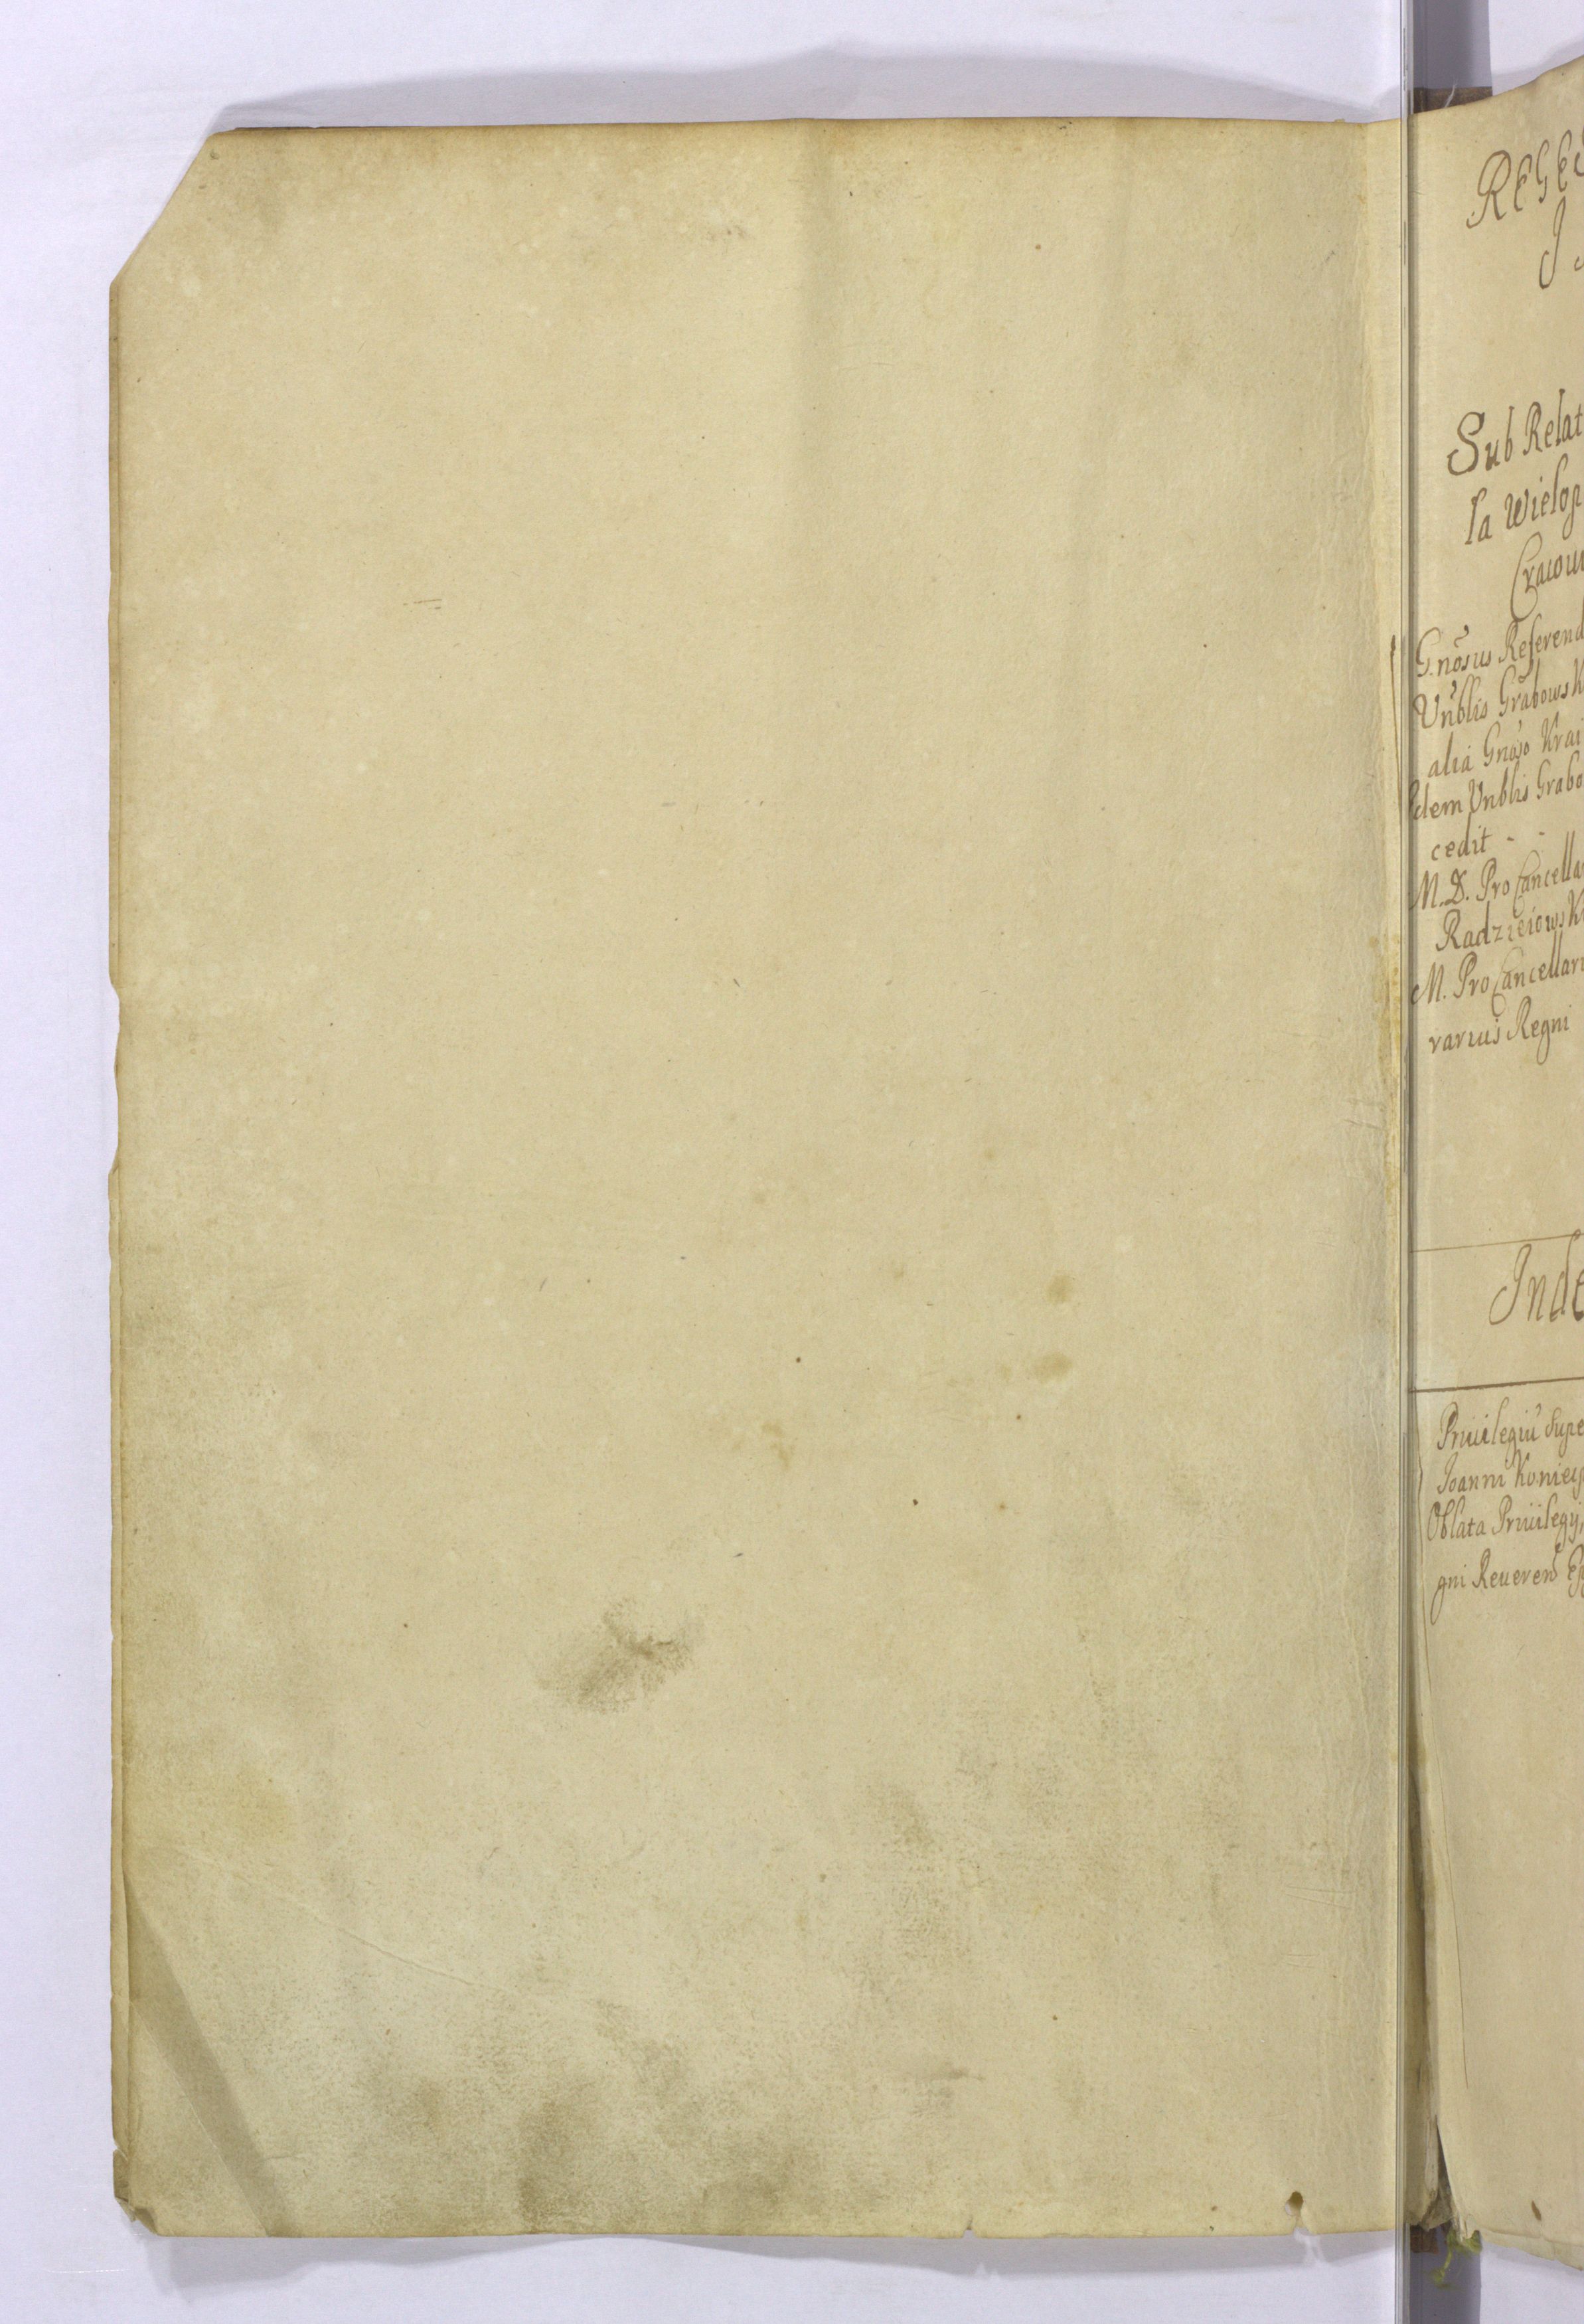 REGES
I
Sub Relat
la Wielop
Cracovi
Gnosus Referend
Vnblis Grabowsk
alia Gnoso Krai
Idem Vnblis Grabo
cedit - -
M.D. ProCancella
Radzieiowsk
M. ProCancellari
rarius Regni
Inde
Priuilegiũ supe
Joanni Koniecp
Oblata Priuilegij
gni Reueren Ep